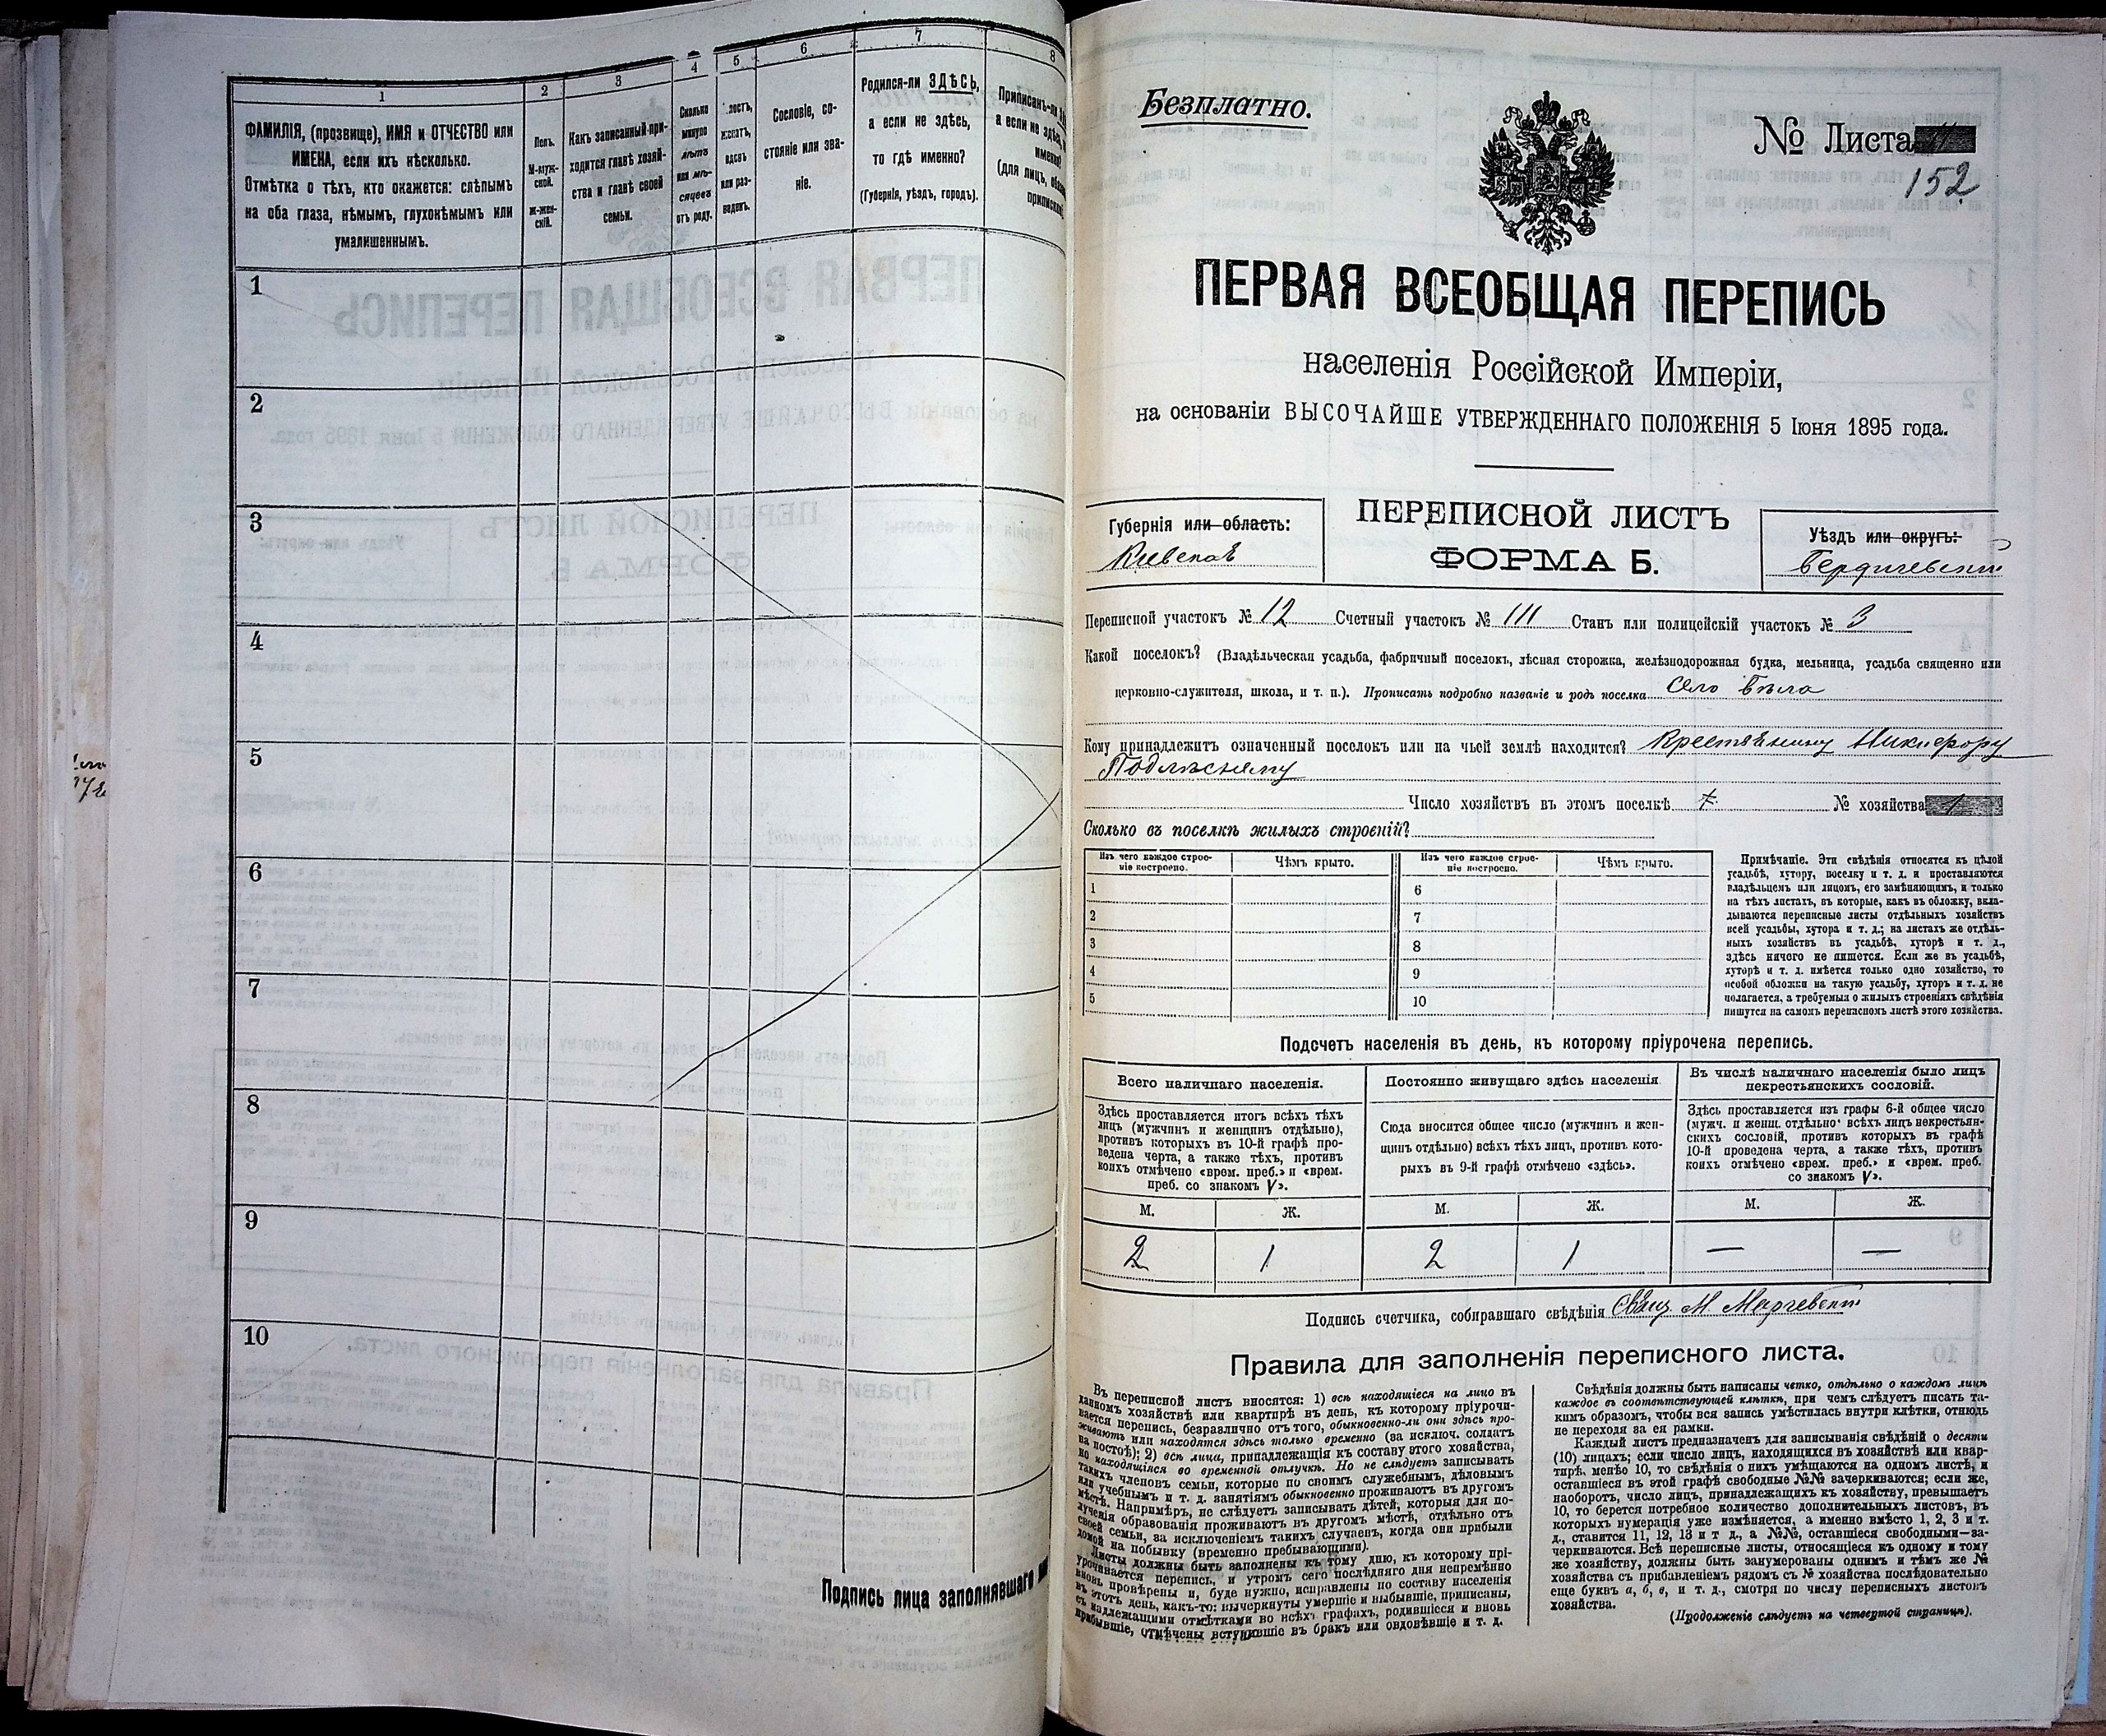 1
2
3
4
5
6
7
8
ФАМИЛІЯ, (прозвище), ИМЯ и ОТЧЕСТВО или
ИМЕНА, если ихъ нѣсколько.
Отмѣтка о тѣхъ, кто окажется: слѣпымъ
на оба глаза, нѣмымъ, глухонѣмымъ или
умалишеннымъ.
Полъ.
М-муж-
ской.
Ж-жен-
скій.
Какъ записанный при-
ходится главѣ хозяй-
ства и главѣ своей
семьи.
Сколько
минуло
лѣтъ
или мѣ-
сяцевъ
отъ роду.
или раз-
веденъ.
Сословіе, со-
стояніе или зва-
ніе.
Родился-ли ЗДѢСЬ,
а если не здѣсь,
то гдѣ именно?
(Губернія, уѣздъ, городъ).
Приписанъ-ли
а если не
(для лицъ,
1
2
3
4
5
6
7
8
9
10
Подпись лица заполнявшаго
Безплатно.
№ Листа
152
ПЕРВАЯ ВСЕОБЩАЯ ПЕРЕПИСЬ
населенія Россійской Имперіи,
на основаніи ВЫСОЧАЙШЕ УТВЕРЖДЕННАГО ПОЛОЖЕНІЯ 5 Іюня 1895 года.
Губернія или область:
Кіевская
ПЕРЕПИСНОЙ ЛИСТЪ
ФОРМА Б.
Уѣздъ или округъ:
Бердичевскій
Переписной участокъ № 12 Счетный участокъ № 111 Станъ или полицейскій участокъ № 3
Какой поселокъ? (Владѣльческая усадьба, фабричный поселокъ, лѣсная сторожка, желѣзнодорожная будка, мельница, усадьба священно или
церковно-служителя, школа, и т. п.). Прописать подробно названіе и родъ поселка Село Бѣла
Кому принадлежитъ означенный поселокъ или на чьей землѣ находится? Крестьянину Никифору
Подлѣсному
Число хозяйствъ въ этомъ поселкѣ № хозяйства 1
Сколько въ поселкѣ жилыхъ строеній?
Изъ чего каждое строе-
ніе построено.
Чѣмъ крыто.
Изъ чего каждое строе-
ніе построено.
Чѣмъ крыто.
1
2
3
4
5
6
7
8
9
10
Примѣчаніе. Эти свѣдѣнія относятся къ цѣлой
усадьбѣ, хутору, поселку и т. д. и проставляются
владѣльцемъ или лицомъ, его замѣняющимъ, и только
на тѣхъ листахъ, въ которые, какъ въ обложку, вкла-
дываются переписные листы отдѣльныхъ хозяйствъ
всей усадьбы, хутора и т. д.; на листахъ же отдѣль-
ныхъ хозяйствъ въ усадьбѣ, хуторѣ и т. д.,
здѣсь ничего не пишется. Если же въ усадьбѣ,
хуторѣ и т. д. имѣется только одно хозяйство, то
особой обложки на такую усадьбу, хуторъ и т. д. не
полагается, а требуемыя о жилыхъ строеніяхъ свѣдѣнія
пишутся на самомъ переписномъ листѣ этого хозяйства.
Подсчетъ населенія въ день, къ которому пріурочена перепись.
Всего наличнаго населенія.
Здѣсь проставляется итогъ всѣхъ тѣхъ
лицъ (мужчинъ и женщинъ отдѣльно),
противъ которыхъ въ 10-й графѣ про-
ведена черта, а также тѣхъ, противъ
коихъ отмѣчено «врем. преб.» и «врем.
преб. со знакомъ V».
Постоянно живущаго здѣсь населенія
Сюда вносится общее число (мужчинъ и жен-
щинъ отдѣльно) всѣхъ тѣхъ лицъ, противъ кото-
рыхъ въ 9-й графѣ отмѣчено «здѣсь».
Въ числѣ наличнаго населенія было лицъ
некрестьянскихъ сословій.
Здѣсь проставляется изъ графы 6-й общее число
(мужч. и женщ. отдѣльно) всѣхъ лицъ некрестьян-
скихъ сословій, противъ которыхъ въ графѣ
10-й проведена черта, а также тѣхъ, противъ
коихъ отмѣчено «врем. преб.» и «врем. преб.
со знакомъ V».
М. Ж. М. Ж. М. Ж.
2 1 2 1 — —
Подпись счетчика, собиравшаго свѣдѣнія Свящ. М.
Правила для заполненія переписного листа.
Въ переписной листъ вносятся: 1) всѣ находящіеся на лицо въ
данномъ хозяйствѣ или квартирѣ въ день, къ которому пріурочи-
вается перепись, безразлично отъ того, обыкновенно-ли они здѣсь про-
живаютъ или находятся здѣсь только временно (за исключ. солдатъ
на постоѣ); 2) всѣ лица, принадлежащія къ составу этого хозяйства,
но находящіяся во временной отлучкѣ. Но не слѣдуетъ записывать
такихъ членовъ семьи, которые по своимъ служебнымъ, дѣловымъ
или учебнымъ и т. д. занятіямъ обыкновенно проживаютъ въ другомъ
мѣстѣ. Напримѣръ, не слѣдуетъ записывать дѣтей, которыя для по-
лученія образованія проживаютъ въ другомъ мѣстѣ, отдѣльно отъ
своей семьи, за исключеніемъ такихъ случаевъ, когда они прибыли
домой на побывку (временно пребывающими).
Листы должны быть заполнены къ тому дню, къ которому прі-
урочивается перепись, и утромъ сего послѣдняго дня непремѣнно
вновь провѣрены и, буде нужно, исправлены по составу населенія
въ этотъ день, какъ-то: вычеркнуты умершіе и выбывшіе, приписаны,
съ надлежащими отмѣтками во всѣхъ графахъ, родившіеся и вновь
прибывшіе, отмѣчены вступившіе въ бракъ или овдовѣвшіе и т. д.
Свѣдѣнія должны быть написаны четко, отдѣльно о каждомъ лицѣ
каждое въ соотвѣтствующей клѣткѣ, при чемъ слѣдуетъ писать та-
кимъ образомъ, чтобы вся запись умѣстилась внутри клѣтки, отнюдь
не переходя за ея рамки.
Каждый листъ предназначенъ для записыванія свѣдѣній о десяти
(10) лицахъ; если число лицъ, находящихся въ хозяйствѣ или квар-
тирѣ, менѣе 10, то свѣдѣнія о нихъ умѣщаются на одномъ листѣ, и
оставшіеся въ этой графѣ свободные №№ зачеркиваются; если же,
наоборотъ, число лицъ, принадлежащихъ къ хозяйству, превышаетъ
10, то берется потребное количество дополнительныхъ листовъ, въ
которыхъ нумерація уже измѣняется, а именно вмѣсто 1, 2, 3 и т.
д., ставится 11, 12, 13 и т д., а №№, оставшіеся свободными—за-
черкиваются. Всѣ переписные листы, относящіеся къ одному и тому
же хозяйству, должны быть занумерованы однимъ и тѣмъ же №
хозяйства съ прибавленіемъ рядомъ съ № хозяйства послѣдовательно
еще буквъ а, б, в, и т. д., смотря по числу переписныхъ листовъ
хозяйства.
(Продолженіе слѣдуетъ на четвертой страницѣ).